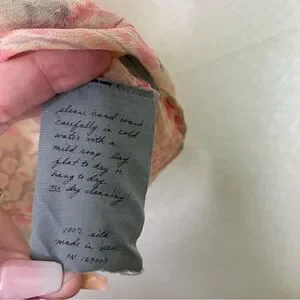 please hand wash
carefully in cold
water with a
mild soap. lay
flat to dry or
hang to dry.
no dry cleaning
100% silk
made in usa
RN 129003